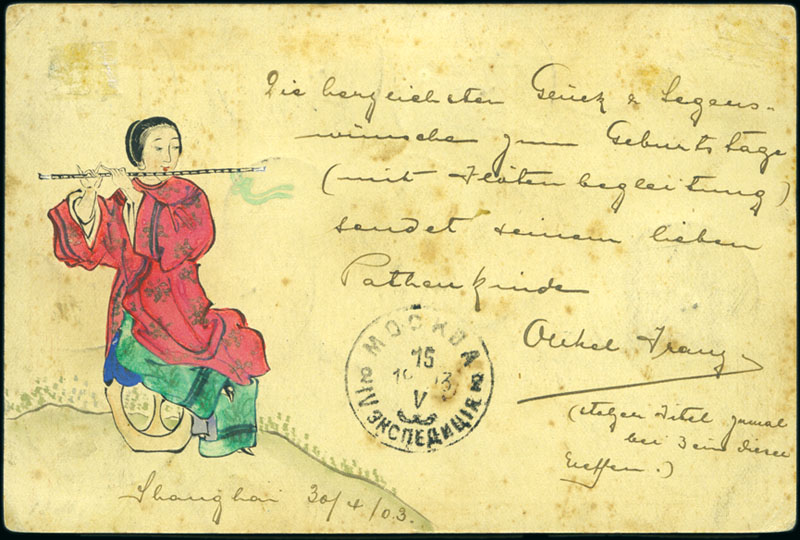 Die herzlichsten Glück & Segens-
wünsche zum Geburtstage
(mit Flötenbegleitung)
sendet seinem lieben
Pathenkinde
Onkel Franz
(stolzer Titel zumal
bei
МОСКВА
15
V
ЭКСПЕДИЦІЯ
Shanghai 30/4/03.